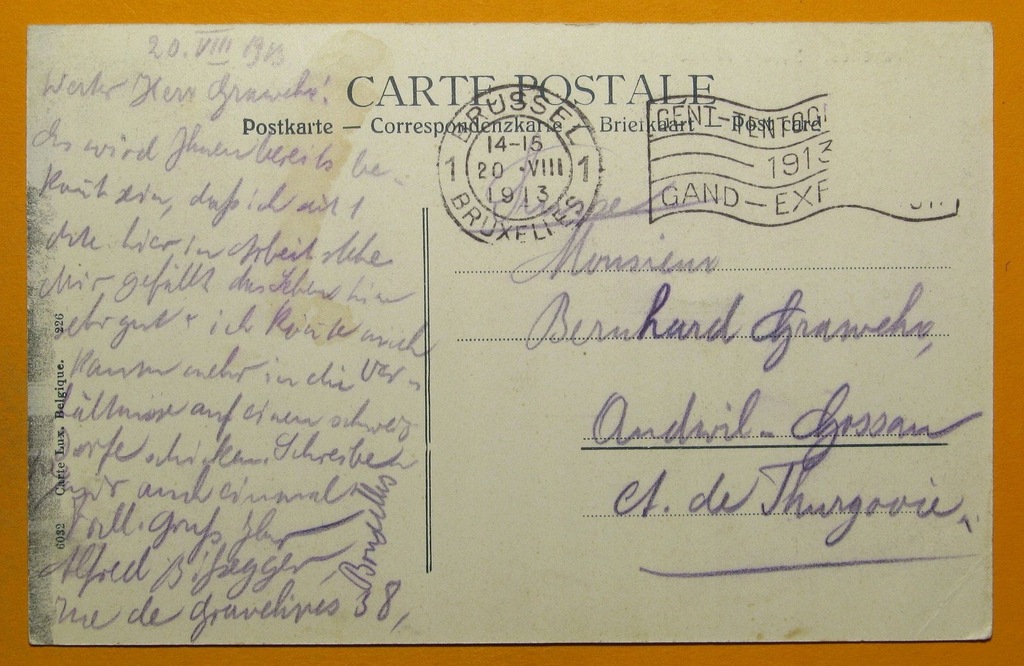 20. VIII 1913
Werter Herr Grawehr!
Es wird Ihnen bereits be-
kannt sein, daß ich seit 1
hier in Arbeit stehe
Mir gefällt das Leben hier
sehr gut & ich könnte mich
kaum mehr in die Ver-
hältnisse auf einem schweiz
Dorfe schicken. Schreiben
mir auch einmal
Frdl. Gruß Ihr
Alfred Bißegger,
rue de Gravelines 38,
Bruxelles
CARTE POSTALE
Postkarte — Correspondenzkarte — Briefkaart — Post card
BRUSSEL
14-15
1 20 ·VIII 1
1913
BRUXELLES
GENT-TENTOO
1913
GAND-EXP
Suisse
Monsieur
Bernhard Grawehr,
Andwil-Gossau
Ct. de Thurgovie.
6032 Carte Lux. Belgique. 226